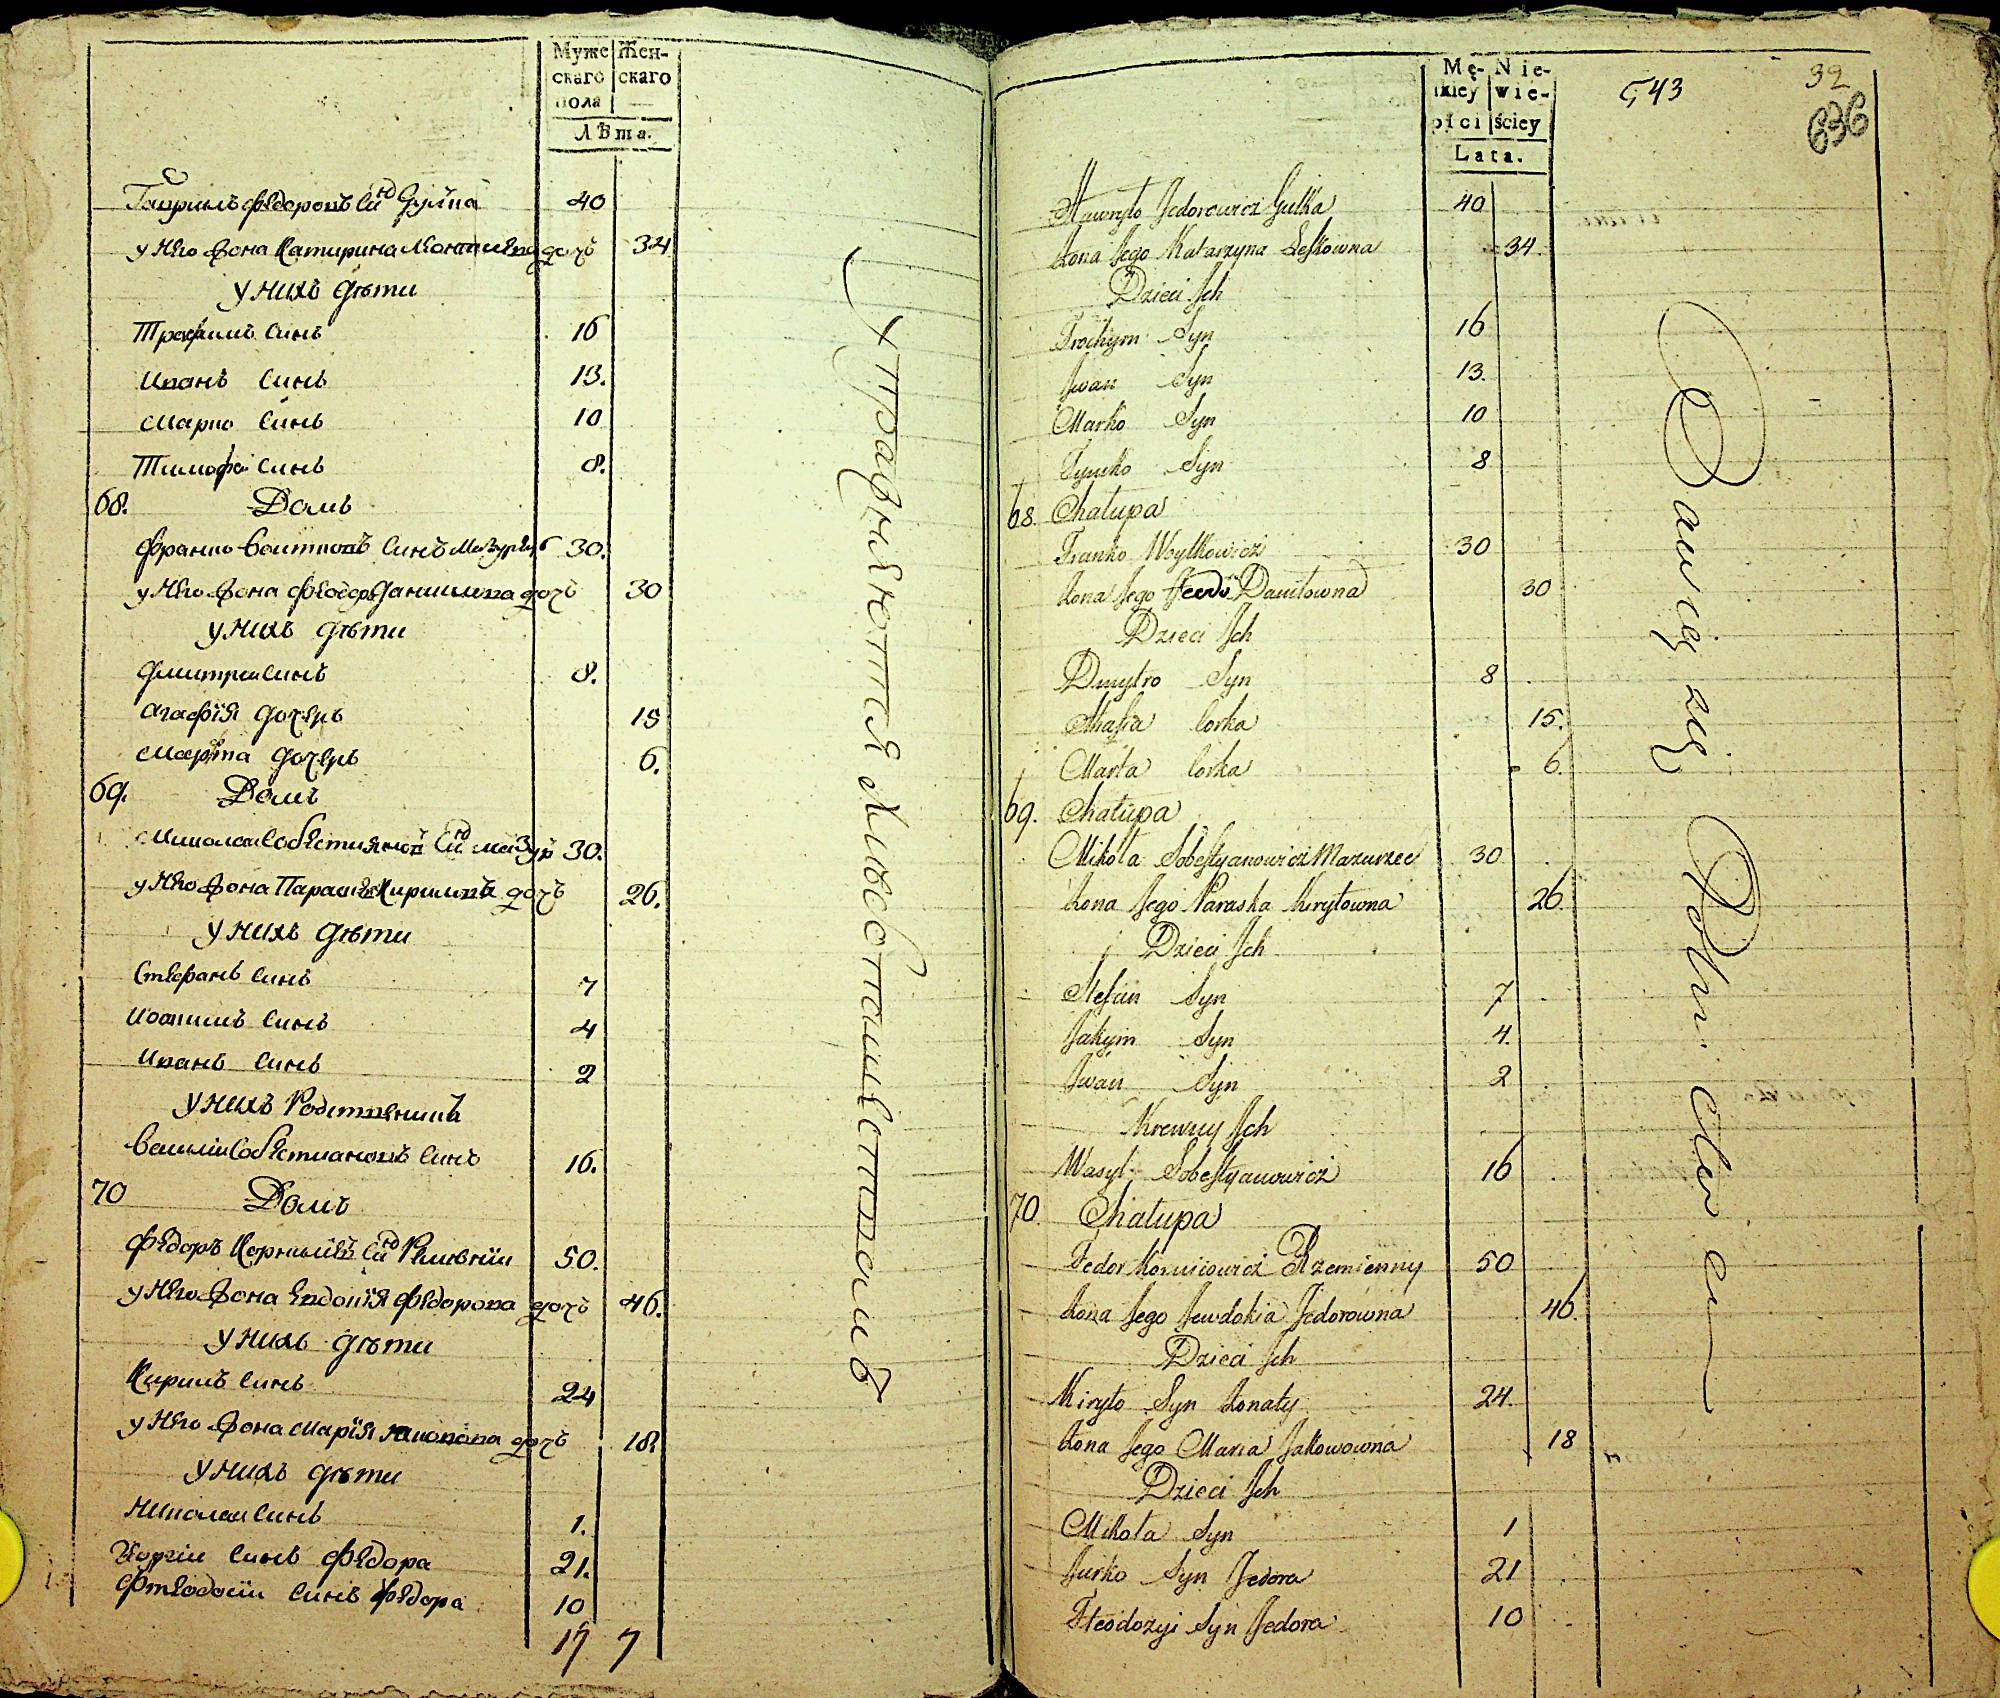 Муже Жен-
скаго скаго
пола —
Лѣта.
Гаврилъ Федоровъ Синъ Гулка 40
у Него Жона Катирина Леонтиева дочъ 34
у нихъ Дѣти
Трофимъ Синъ 16
Иванъ Синъ 13.
Марко Синъ 10
Тимофей Синъ 8.
68. Домъ
Франко Воитковъ Синъ Мазурецъ 30.
у Него Жона Данилова дочъ 30
у нихъ Дѣти
Дмитрей Синъ 8.
Агафїя Дочерь 15
Марта Дочерь 6.
69. Домъ
Миколай Собестияновъ Синъ 30.
у Него Жона Параска Кирилова дочъ 26.
у нихъ Дѣти
Стефанъ Синъ 7
Иоакимъ Синъ 4
Иванъ Синъ 2
у нихъ Родственникъ
Василий Собестиановъ Синъ 16.
70 Домъ
Федоръ Синъ 50.
у Него Жона Евдокїя Федорова дочъ 46.
у нихъ Дѣти
Кирилъ Синъ 24
у Него Жона Марїя Яковова дочъ 18.
у нихъ Дѣти
Николай Синъ 1.
Юргїи Синъ Федора 21.
Фтеодосїи Синъ Федора 10
17 7
Упражняются Хлебопашествомъ
Mę- Nie-
skiey wie-
płci ściey
Lata.
543 32
636
Hawryło Fedorowicz Gulka 40
żona Jego Katarzyna Leskowna 34.
Dzieci Jch
Trochym Syn 16
Jwan Syn 13.
Marko Syn 10
Tymko Syn 8
68. Chałupa
Franko Woytkowicz 30
żona Jego Daniłowna 30
Dzieci Jch
Dmytro Syn 8
Ahafia Corka 15.
Marta Corka 6.
69. Chałupa
Mikołа Sobestyanowicz Mazurzec 30
żona Jego Paraska Kiryłowna 26.
Dzieci Jch
Stefan Syn 7
Jakym Syn 4.
Jwan Syn 2
Krewny Jch
Wasyl Sobestyanowicz 16
70. Chałupa
Fedor Rzemienny 50
żona Jego Jewdokia Fedorowna 46.
Dzieci Jch
Kiryło Syn żonaty 24.
żona Jego Maria Jakowowna 18
Dzieci Jch
Mikoła Syn 1
Jurko Syn Fedora 21
Fteodozyi Syn Fedora 10
Bawią się Rolnictwem